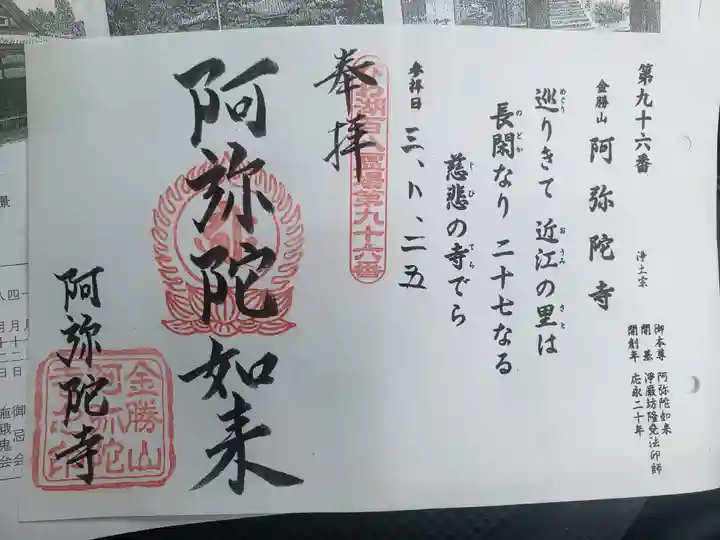 第九十六番
金勝山 阿弥陀寺 浄土宗
御本尊 阿弥陀如来
開基 浄厳坊隆堯法印師
開創年 応永二十年
巡りきて 近江の里は
めぐり おうみ さと
長閑なり 二十七なる
のどか
慈悲の寺でら
じひ てら
参拝日 三、八、二五
奉拝
びわ湖百八霊場第九十六番
阿弥陀如来
阿弥陀寺
金勝山
阿弥陀
景
施餓鬼会
御忌会